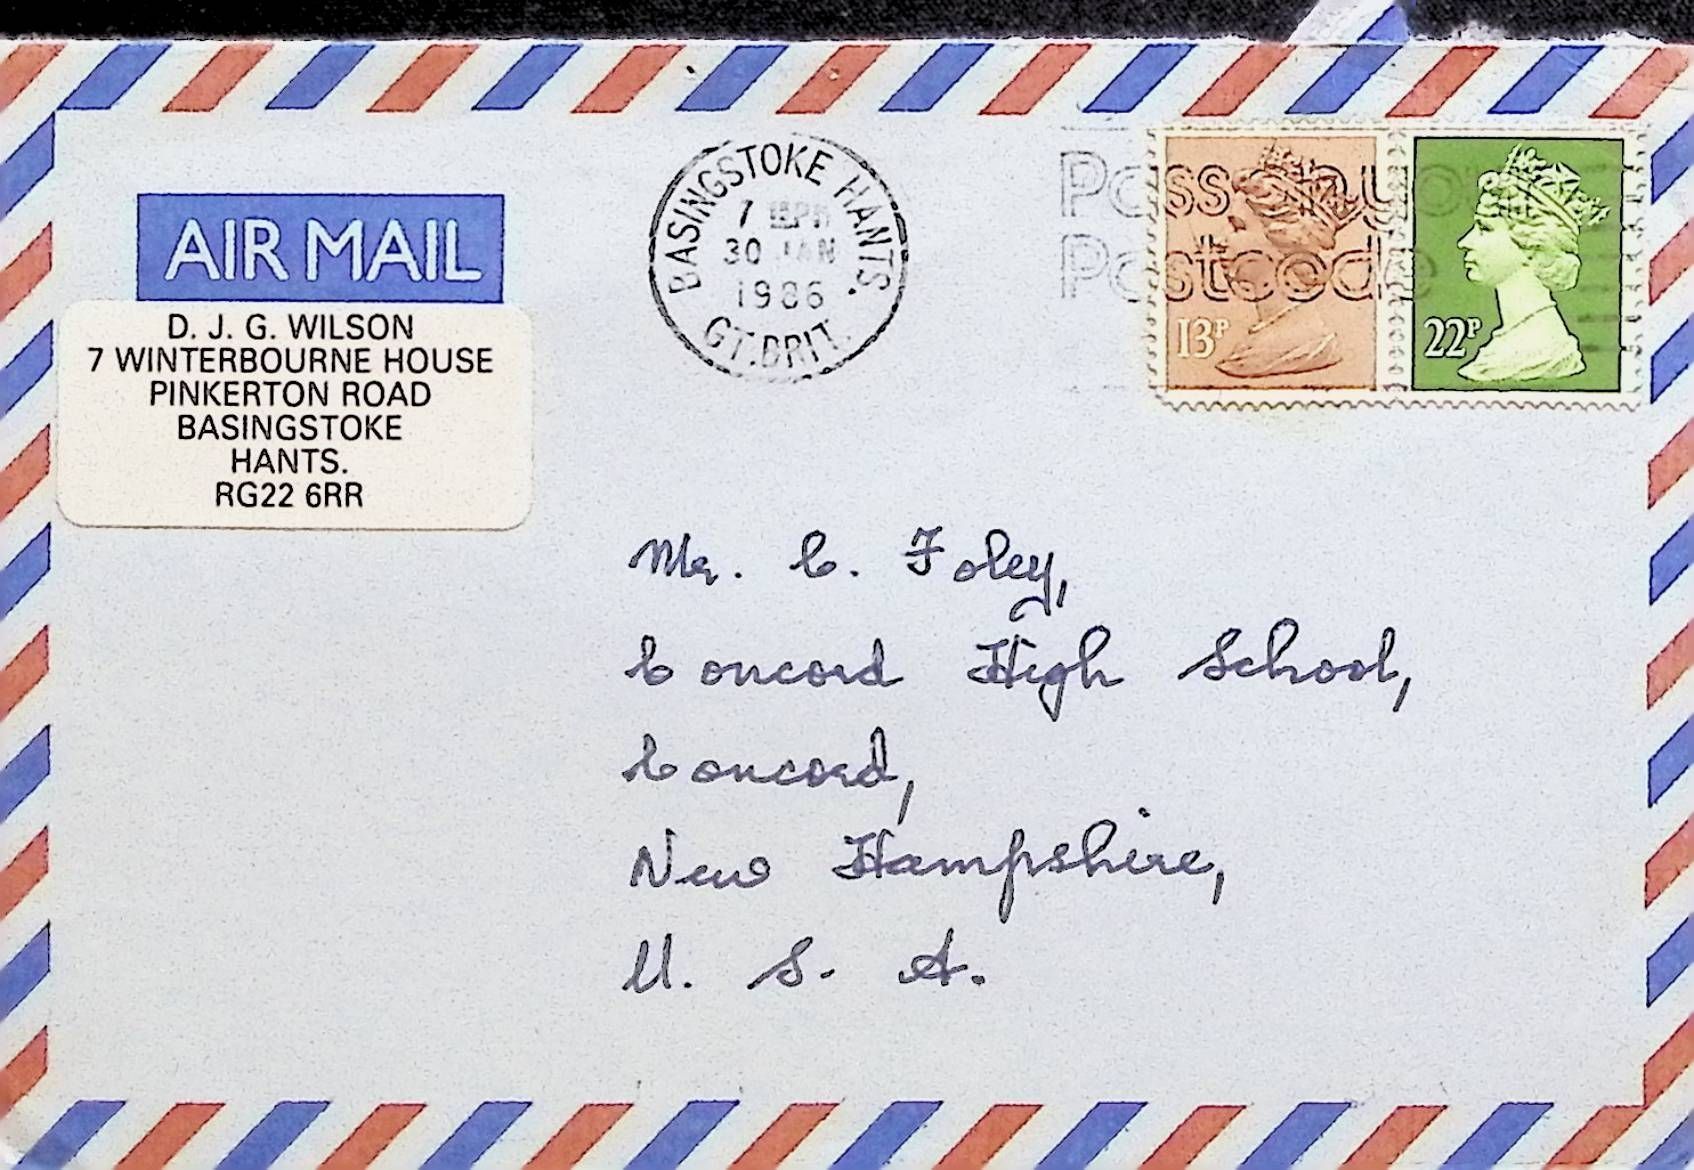 AIR MAIL
D. J. G. WILSON
7 WINTERBOURNE HOUSE
PINKERTON ROAD
BASINGSTOKE
HANTS.
RG22 6RR
BASINGSTOKE HANTS.
30 JAN
1986
GT. BRIT.
Pass on your
Postcode
13P
22P
Mr. C. Foley,
Concord High School,
Concord,
New Hampshire,
U. S. A.